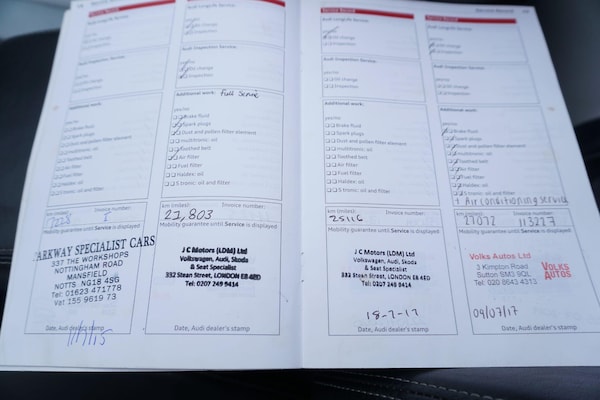 Service Record
Audi LongLife Service:
yes/no
Oil change
Inspection
Audi Inspection Service:
yes/no
Oil change
Inspection
Additional work:
yes/no
Brake fluid
Spark plugs
Dust and pollen filter element
multitronic: oil
Toothed belt
Air filter
Fuel filter
Haldex: oil
S tronic: oil and filter
km (miles):
Invoice number:
Mobility guarantee until Service is displayed
PARKWAY SPECIALIST CARS
337 THE WORKSHOPS
NOTTINGHAM ROAD
MANSFIELD
NOTTS NG18 4SG
Tel: 01623 471778
Vat 155 9619 73
Date, Audi dealer's stamp
Audi LongLife Service:
yes/no
Oil change
Inspection
Audi Inspection Service:
yes/no
Oil change
Inspection
Additional work: Full Service
yes/no
Brake fluid
Spark plugs
Dust and pollen filter element
multitronic: oil
Toothed belt
Air filter
Fuel filter
Haldex: oil
S tronic: oil and filter
km (miles):
Invoice number:
22,803
Mobility guarantee until Service is displayed
J C Motors (LDM) Ltd
Volkswagen, Audi, Skoda
& Seat Specialist
332 Stean Street, LONDON E8 4ED
Tel: 0207 249 8414
Date, Audi dealer's stamp
Service Record
Audi LongLife Service:
yes/no
Oil change
Inspection
Audi Inspection Service:
yes/no
Oil change
Inspection
Additional work:
yes/no
Brake fluid
Spark plugs
Dust and pollen filter element
multitronic: oil
Toothed belt
Air filter
Fuel filter
Haldex: oil
S tronic: oil and filter
km (miles):
Invoice number:
25116
Mobility guarantee until Service is displayed
J C Motors (LDM) Ltd
Volkswagen, Audi, Skoda
& Seat Specialist
332 Stean Street, LONDON E8 4ED
Tel: 0207 249 8414
18-7-17
Date, Audi dealer's stamp
Service Record
Audi LongLife Service:
yes/no
Oil change
Inspection
Audi Inspection Service:
yes/no
Oil change
Inspection
Additional work:
yes/no
Brake fluid
Spark plugs
Dust and pollen filter element
multitronic: oil
Toothed belt
Air filter
Fuel filter
Haldex: oil
S tronic: oil and filter
+ Air conditioning service
km (miles):
Invoice number:
27072
113227
Mobility guarantee until Service is displayed
Volks Autos Ltd
3 Kimpton Road
Sutton SM3 9QL
Tel: 020 8643 4313
VOLKS
AUTOS
04/07/17
Date, Audi dealer's stamp